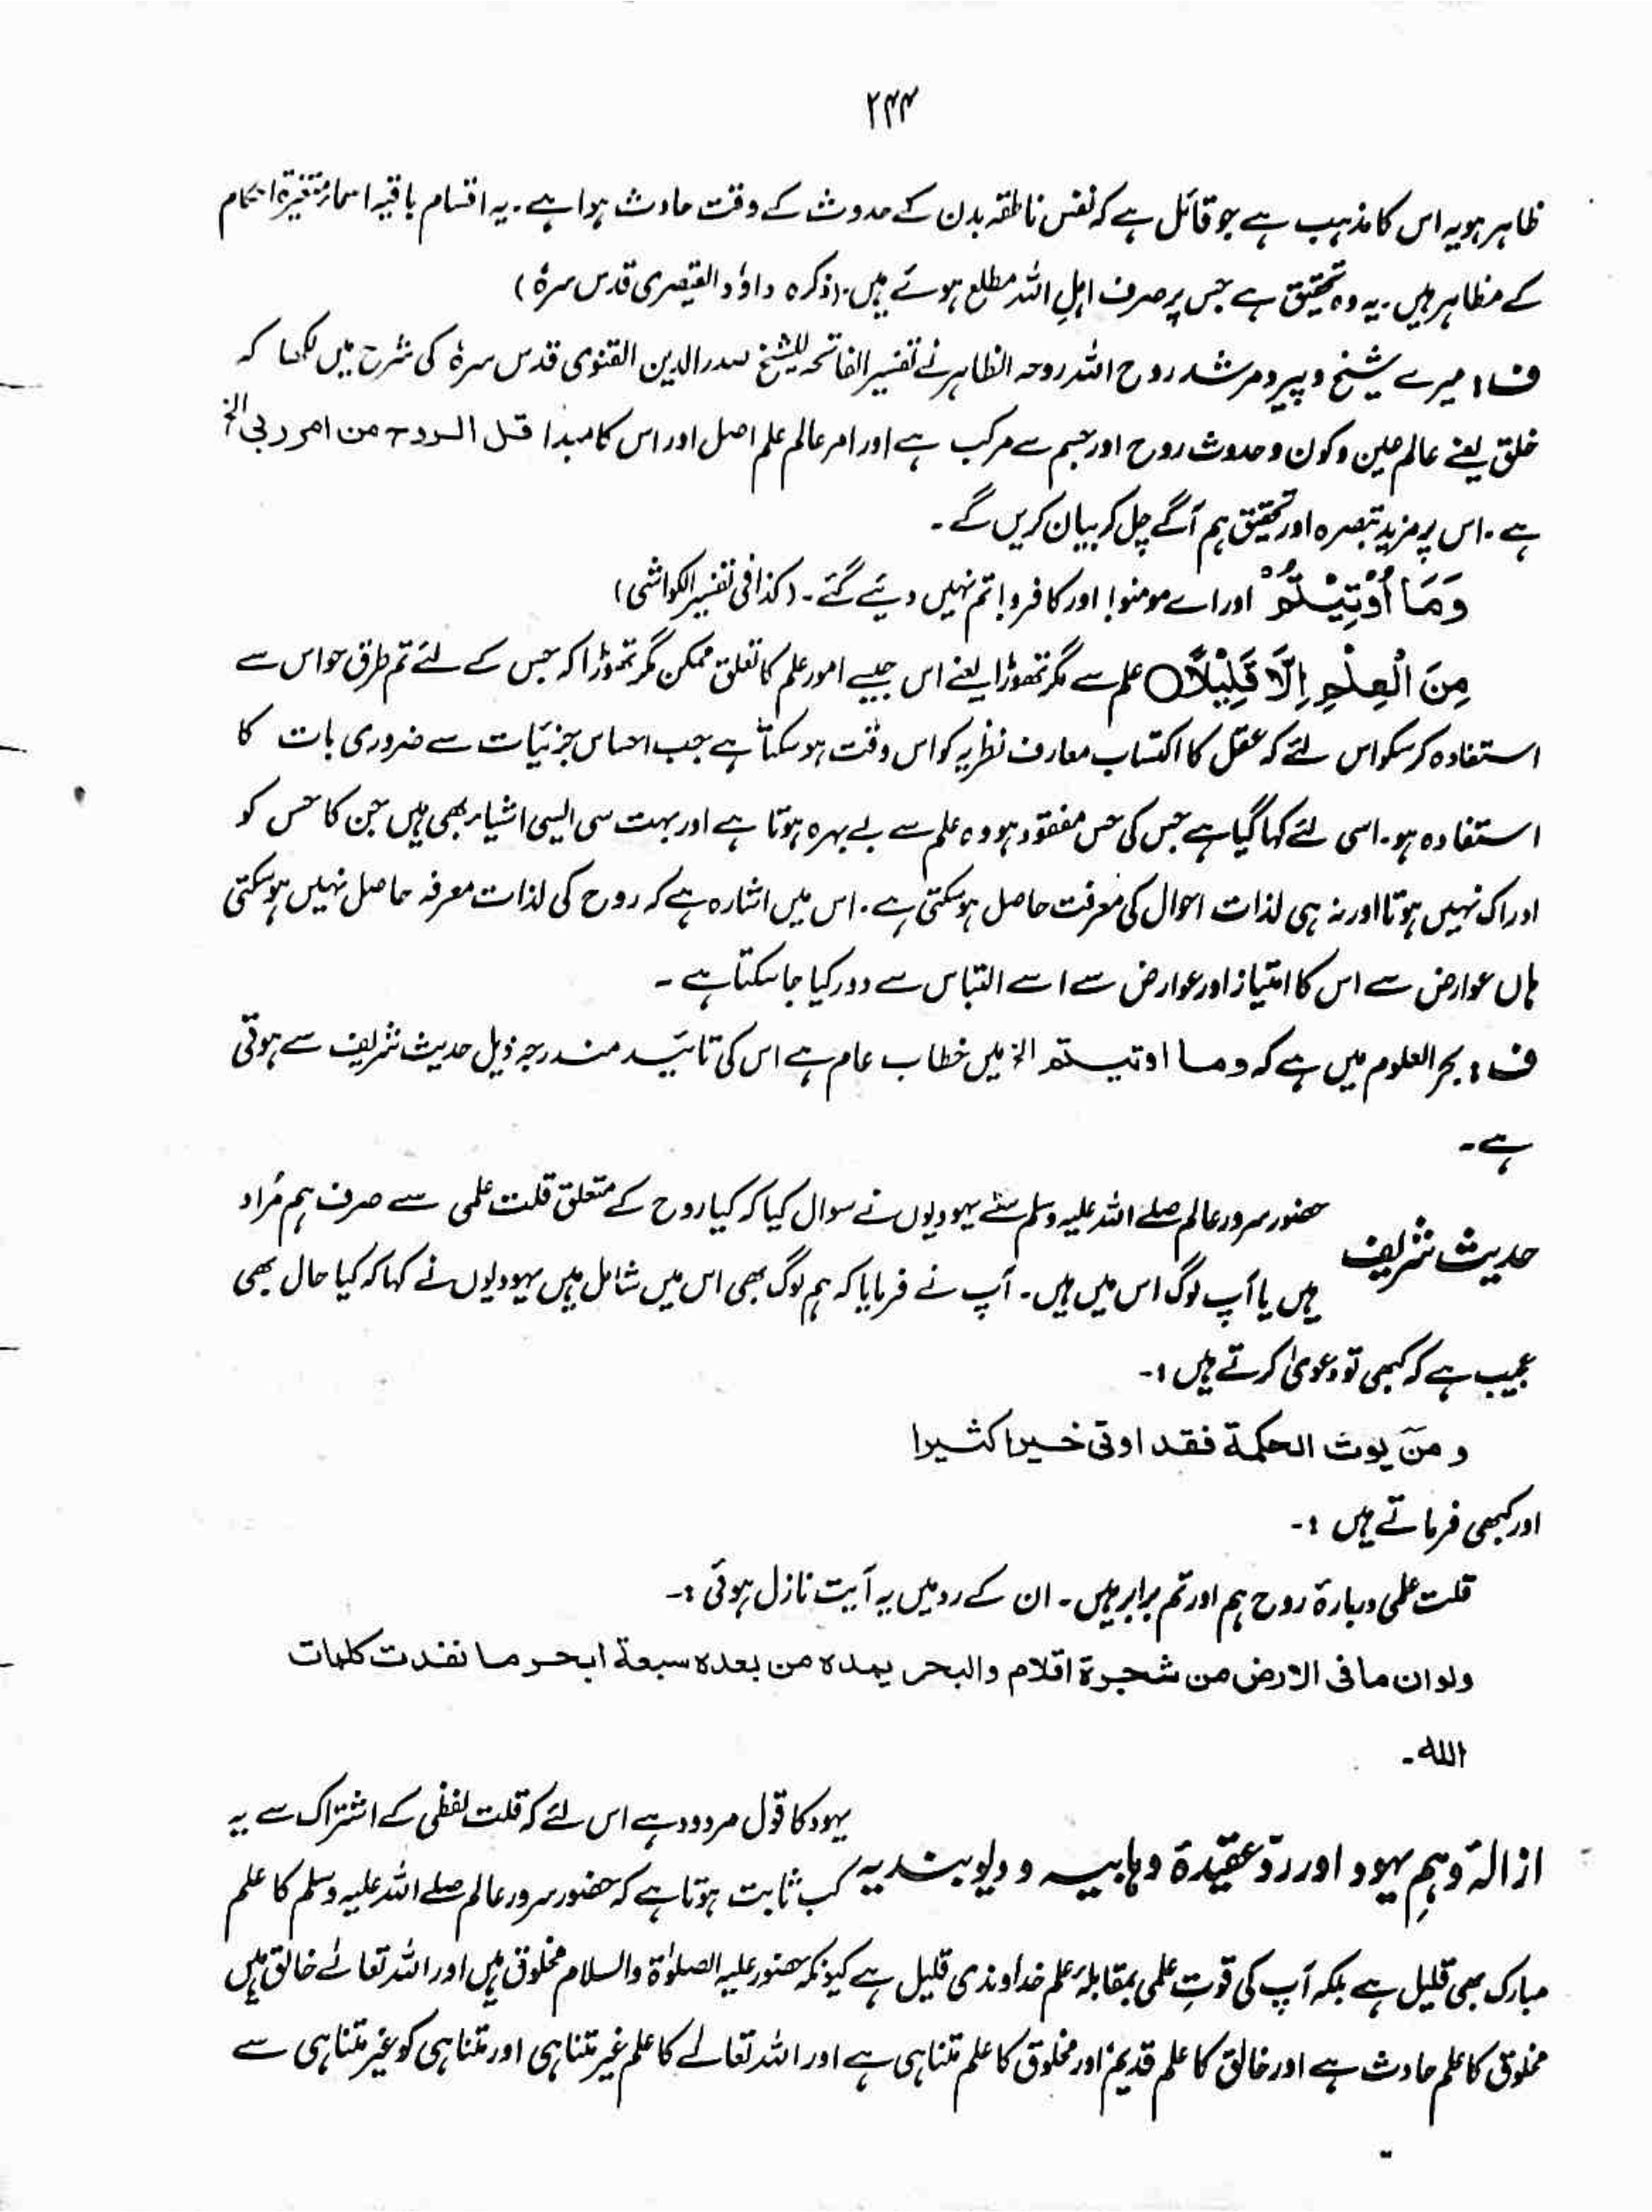 ۲۴۴
ظاہر ہو یہ اس کا مذہب ہے جو قائل ہے کہ نفس ناطقہ بدن کے حدوث کے وقت حادث ہوا ہے۔ یہ اقسام باقیہ اسماء متغیرۃ احکام
کے مظاہر ہیں۔ یہ وہ تحقیق ہے جس پر صرف اہلِ اللہ مطلع ہوئے ہیں۔ (ذکرہ داؤد القیصری قدس سرہٗ)
ف: میرے شیخ و پیر و مرشد روح اللہ روحہ الظاہر نے تفسیر الفاتحہ للشیخ صدر الدین القنوی قدس سرہٗ کی شرح میں لکھا کہ
خلق یعنے عالم عین و کون و حدوث روح اور جسم سے مرکب ہے اور امر عالم علم اصل اور اس کا مبدا قل الروح من امر ربی الخ
ہے۔ اس پر مزید تبصرہ اور تحقیق ہم آگے چل کر بیان کریں گے۔
وَمَا أُوْتِيْتُمْ اور اے مومنو! اور کافرو! تم نہیں دیئے گئے۔ (کذا فی تفسیر الکواشی)
مِنَ الْعِلْمِ اِلَّا قَلِيْلًا ○ علم سے مگر تھوڑا یعنے اس جیسے امور علم کا تعلق ممکن مگر تھوڑا کہ جس کے لئے تم طرق حواس سے
استفادہ کر سکو اس لئے کہ عقل کا اکتساب معارف نظریہ کو اس وقت ہو سکتا ہے جب احساس جزئیات سے ضروری بات کا
استفادہ ہو۔ اسی لئے کہا گیا ہے جس کی حس مفقود ہو وہ علم سے بے بہرہ ہوتا ہے اور بہت سی ایسی اشیاء بھی ہیں جن کا حس کو
ادراک نہیں ہوتا اور نہ ہی لذات احوال کی معرفت حاصل ہو سکتی ہے۔ اس میں اشارہ ہے کہ روح کی لذات معرفہ حاصل نہیں ہو سکتی
ہاں عوارض سے اس کا امتیاز اور عوارض سے اسے التباس سے دور کیا جا سکتا ہے۔
ف: بحر العلوم میں ہے کہ وما اوتیتم الخ میں خطاب عام ہے اس کی تائید مندرجہ ذیل حدیث شریف سے ہوتی
ہے۔
حدیث شریف حضور سرور عالم صلے اللہ علیہ وسلم سے یہودیوں نے سوال کیا کہ کیا روح کے متعلق قلت علمی سے صرف ہم مُراد
ہیں یا آپ لوگ اس میں ہیں۔ آپ نے فرمایا کہ ہم لوگ بھی اس میں شامل ہیں یہودیوں نے کہا کہ کیا حال بھی
عجیب ہے کہ کبھی تو دعویٰ کرتے ہیں :-
و من یوت الحکمۃ فقد اوتی خیرا کثیرا
اور کبھی فرماتے ہیں :-
قلت علمی دربارۂ روح ہم اور تم برابر ہیں۔ ان کے رد میں یہ آیت نازل ہوئی :-
ولو ان ما فی الارض من شجرة اقلام والبحر یمدہ من بعدہ سبعة ابحر ما نفدت کلمات
اللہ۔
ازالۂ وہمِ یہود اور ردّ عقیدۂ وہابیہ و دیوبندیہ یہود کا قول مردود ہے اس لئے کہ قلت لفظی کے اشتراک سے یہ
کب ثابت ہوتا ہے کہ حضور سرور عالم صلے اللہ علیہ وسلم کا علم
مبارک بھی قلیل ہے بلکہ آپ کی قوتِ علمی بمقابلۂ علم خداوندی قلیل ہے کیونکہ حضور علیہ الصلوٰۃ والسلام مخلوق ہیں اور اللہ تعالےٰ خالق ہیں
مخلوق کا علم حادث ہے اور خالق کا علم قدیم اور مخلوق کا علم متناہی ہے اور اللہ تعالےٰ کا علم غیر متناہی اور متناہی کو غیر متناہی سے